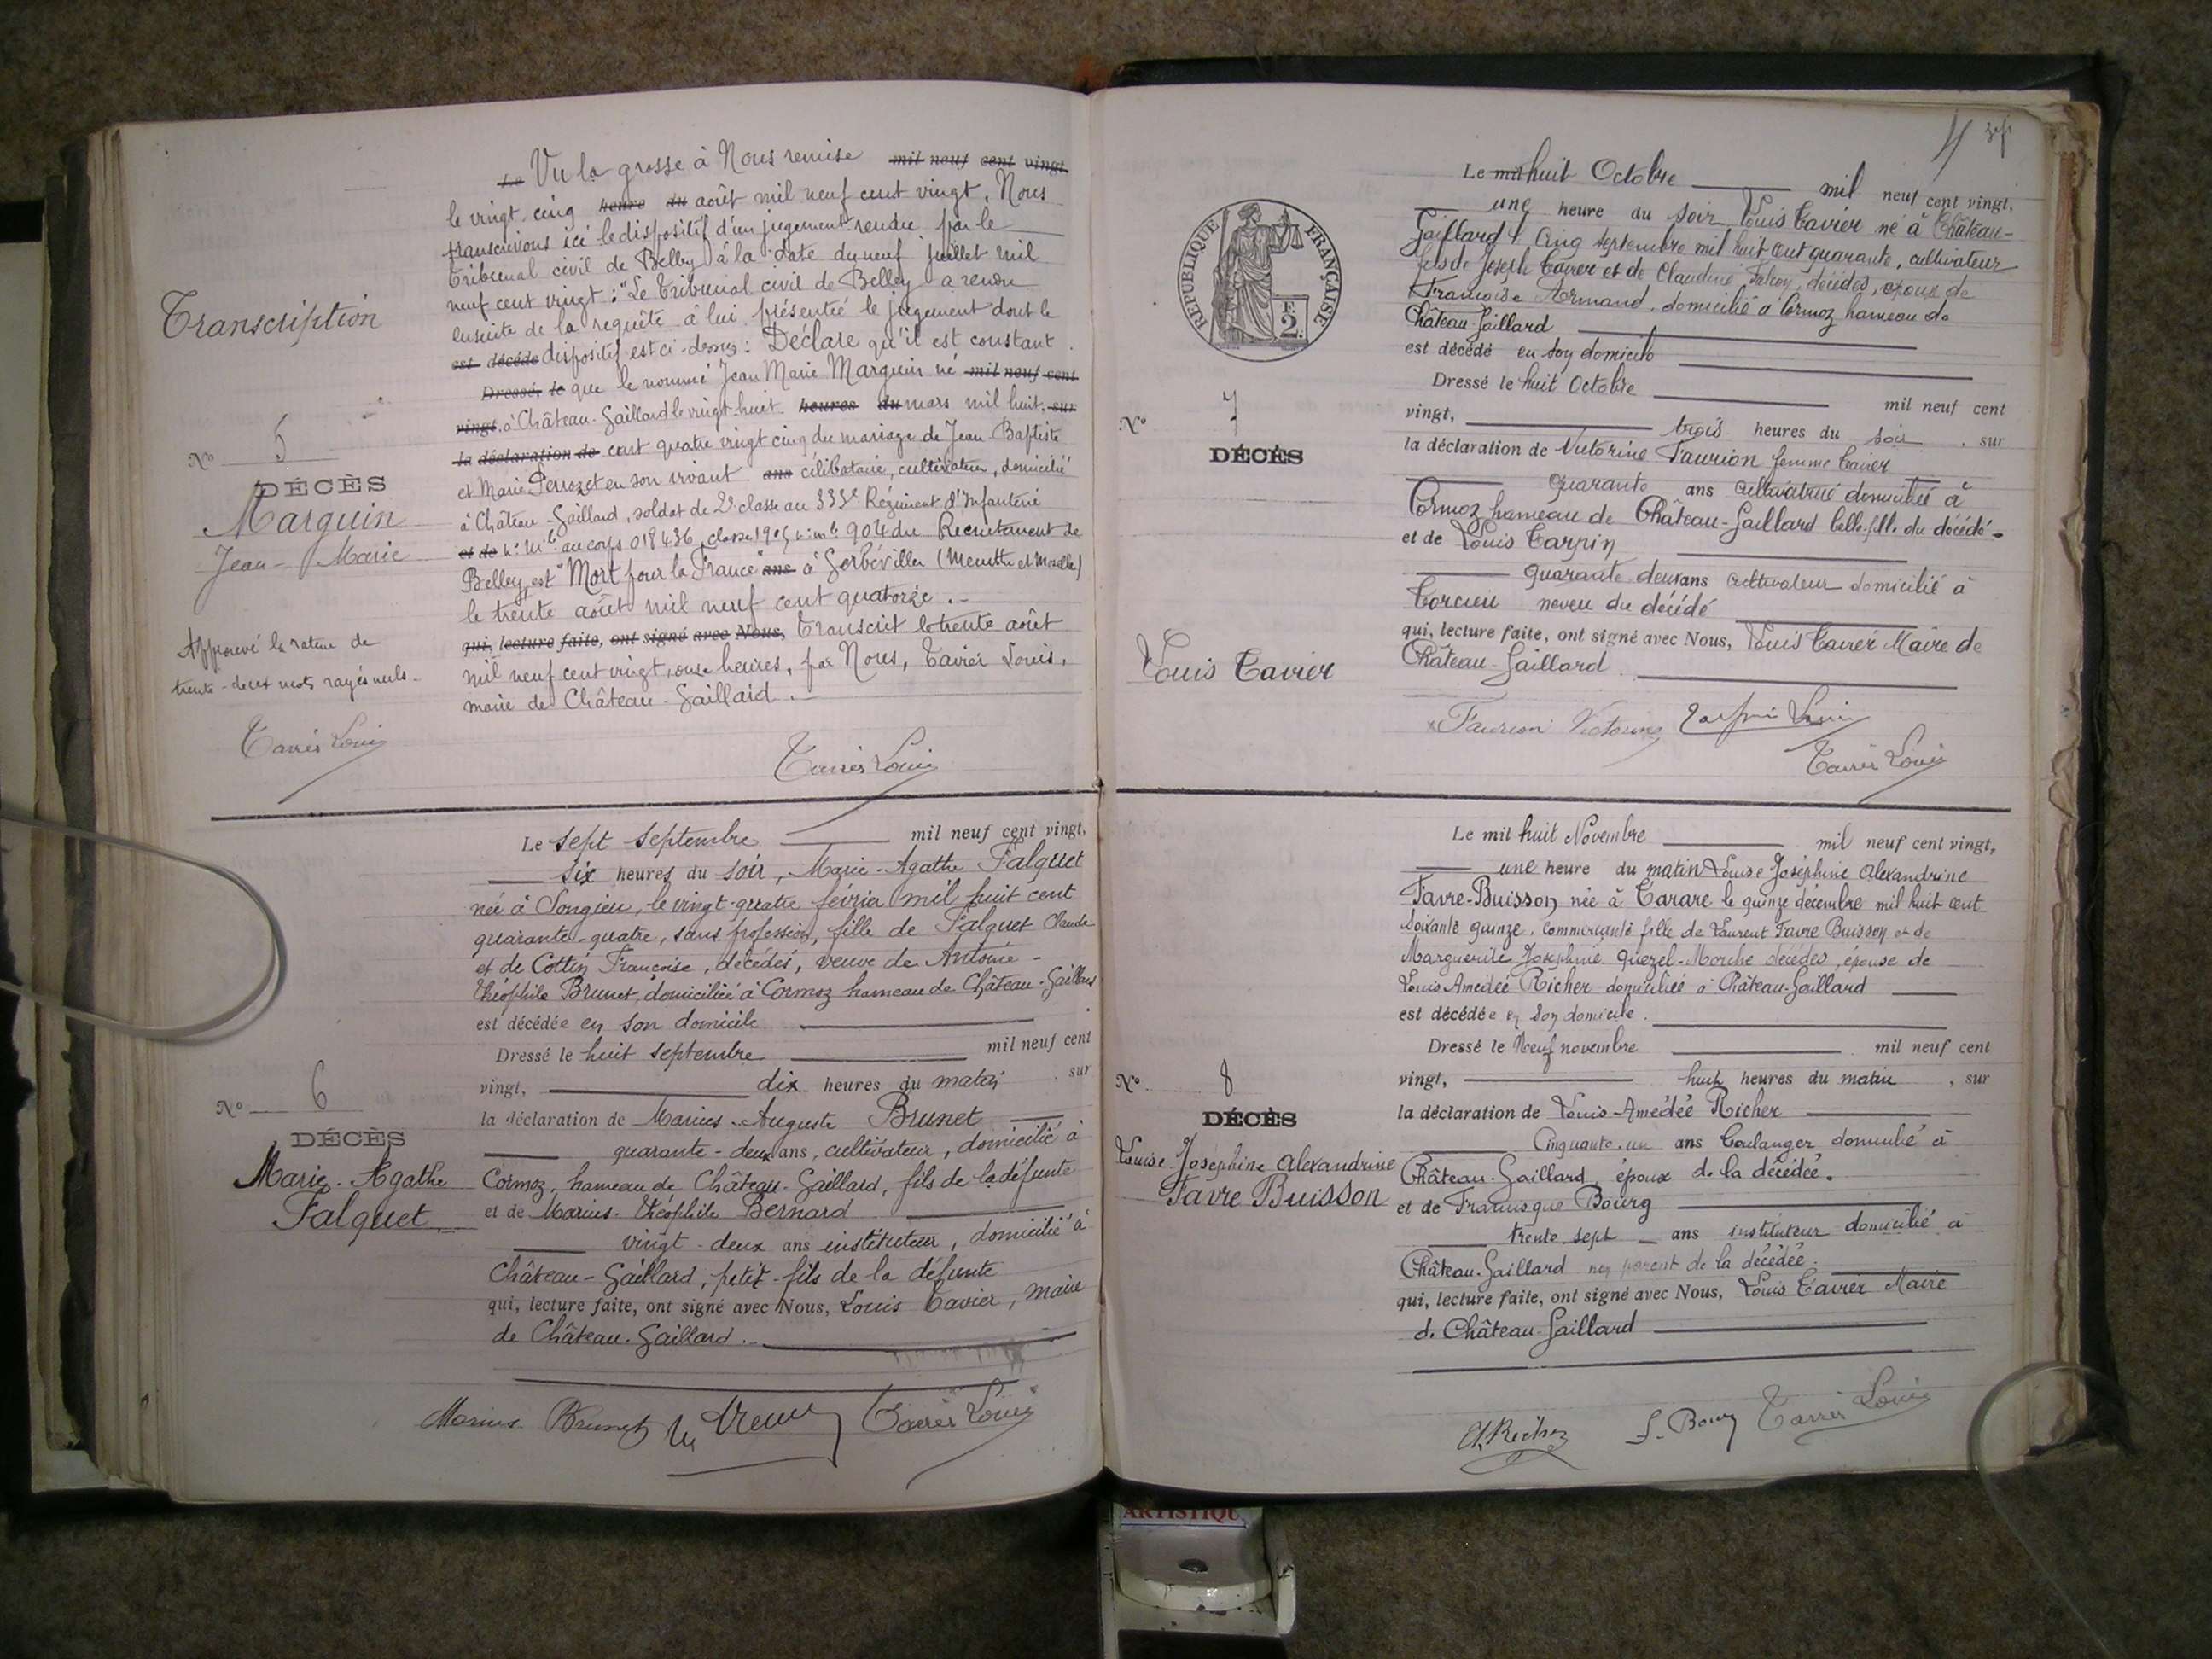 Transcription
N° 5
DÉCÈS
Marguin
Jean-Marie
Approuvé la rature de
trente-deux mots rayés nuls.
Tavier Louis
Le Vu la grosse à Nous remise mil neuf cent vingt,
le vingt-cinq heure du août mil neuf cent vingt, Nous
transcrivons ici le dispositif d'un jugement rendu par le
Tribunal civil de Belley à la date du neuf juillet mil
neuf cent vingt : "Le Tribunal civil de Belley a rendu
ensuite de la requête à lui présentée le jugement dont le
est décédé dispositif est ci-dessus : Déclare qu'il est constant
Dressé le que le nommé Jean Marie Marguin né mil neuf cent
vingt, à Château-Gaillard le vingt-huit heures du mars mil huit, sur
la déclaration de cent quatre vingt cinq du mariage de Jean-Baptiste
et Marie Perrozet en son vivant ans célibataire, cultivateur, domicilié
à Château-Gaillard, soldat de 2e classe au 333e Régiment d'Infanterie
et de n° Mle au corps 018436, classe 1905 n° mle 904 du Recrutement de
Belley, est "Mort pour la France" ans à Gerbéviller (Meurthe et Moselle)
le trente août mil neuf cent quatorze.-
qui, lecture faite, ont signé avec Nous, Transcrit le trente août
mil neuf cent vingt, onze heures, par Nous, Tavier Louis,
maire de Château-Gaillard.-
Tavier Louis
N° 6
DÉCÈS
Marie-Agathe
Falquet
Le sept septembre mil neuf cent vingt,
six heures du soir, Marie-Agathe Falquet
née à Songieu, le vingt-quatre février mil huit cent
quarante-quatre, sans profession, fille de Falquet Claude
et de Cottin Françoise, décédés, veuve de Antoine-
Théophile Brunet, domiciliée à Cormoz hameau de Château-Gaillard
est décédée en son domicile
Dressé le huit septembre mil neuf cent
vingt, dix heures du matin, sur
la déclaration de Marius-Auguste Brunet
quarante-deux ans, cultivateur, domicilié à
Cormoz, hameau de Château-Gaillard, fils de la défunte
et de Marius-Théophile Bernard
vingt-deux ans instituteur, domicilié à
Château-Gaillard, petit-fils de la défunte
qui, lecture faite, ont signé avec Nous, Louis Tavier, maire
de Château-Gaillard.-
Marius Brunet Tavier Louis
4
RÉPUBLIQUE FRANÇAISE
F.
2.
N° 7
DÉCÈS
Louis Tavier
Le mil huit Octobre mil neuf cent vingt,
une heure du soir Louis Tavier né à Château-
Gaillard cinq septembre mil huit cent quarante, cultivateur
fils de Joseph Tavier et de Claudine Falcoz, décédés, époux de
Françoise Armand, domicilié à Cormoz hameau de
Château-Gaillard
est décédé en son domicile
Dressé le huit Octobre mil neuf cent
vingt, trois heures du soir, sur
la déclaration de Victorine Faurion femme Tavier
quarante ans cultivatrice domiciliée à
Cormoz hameau de Château-Gaillard belle-fille du décédé-
et de Louis Tarpin
quarante deux ans cultivateur domicilié à
Torcieu neveu du décédé
qui, lecture faite, ont signé avec Nous, Louis Tavier Maire de
Château-Gaillard
Faurion Victorine Tarpin Louis
Tavier Louis
N° 8
DÉCÈS
Louise Joséphine Alexandrine
Favre Buisson
Le mil huit Novembre mil neuf cent vingt,
une heure du matin Louise Joséphine Alexandrine
Favre-Buisson née à Tarare le quinze décembre mil huit cent
soixante quinze, commerçante fille de Laurent Favre Buisson et de
Marguerite Joséphine Quezel-Morche décédés, épouse de
Louis Amédée Richer domiciliée à Château-Gaillard
est décédée en son domicile.
Dressé le Neuf novembre mil neuf cent
vingt, huit heures du matin, sur
la déclaration de Louis-Amédée Richer
Cinquante-un ans boulanger domicilié à
Château-Gaillard, époux de la décédée.
et de Francisque Bourg
trente sept ans instituteur domicilié à
Château-Gaillard non parent de la décédée.
qui, lecture faite, ont signé avec Nous, Louis Tavier Maire
de Château-Gaillard
A. Richer F. Bourg Tavier Louis
ARTISTIQU